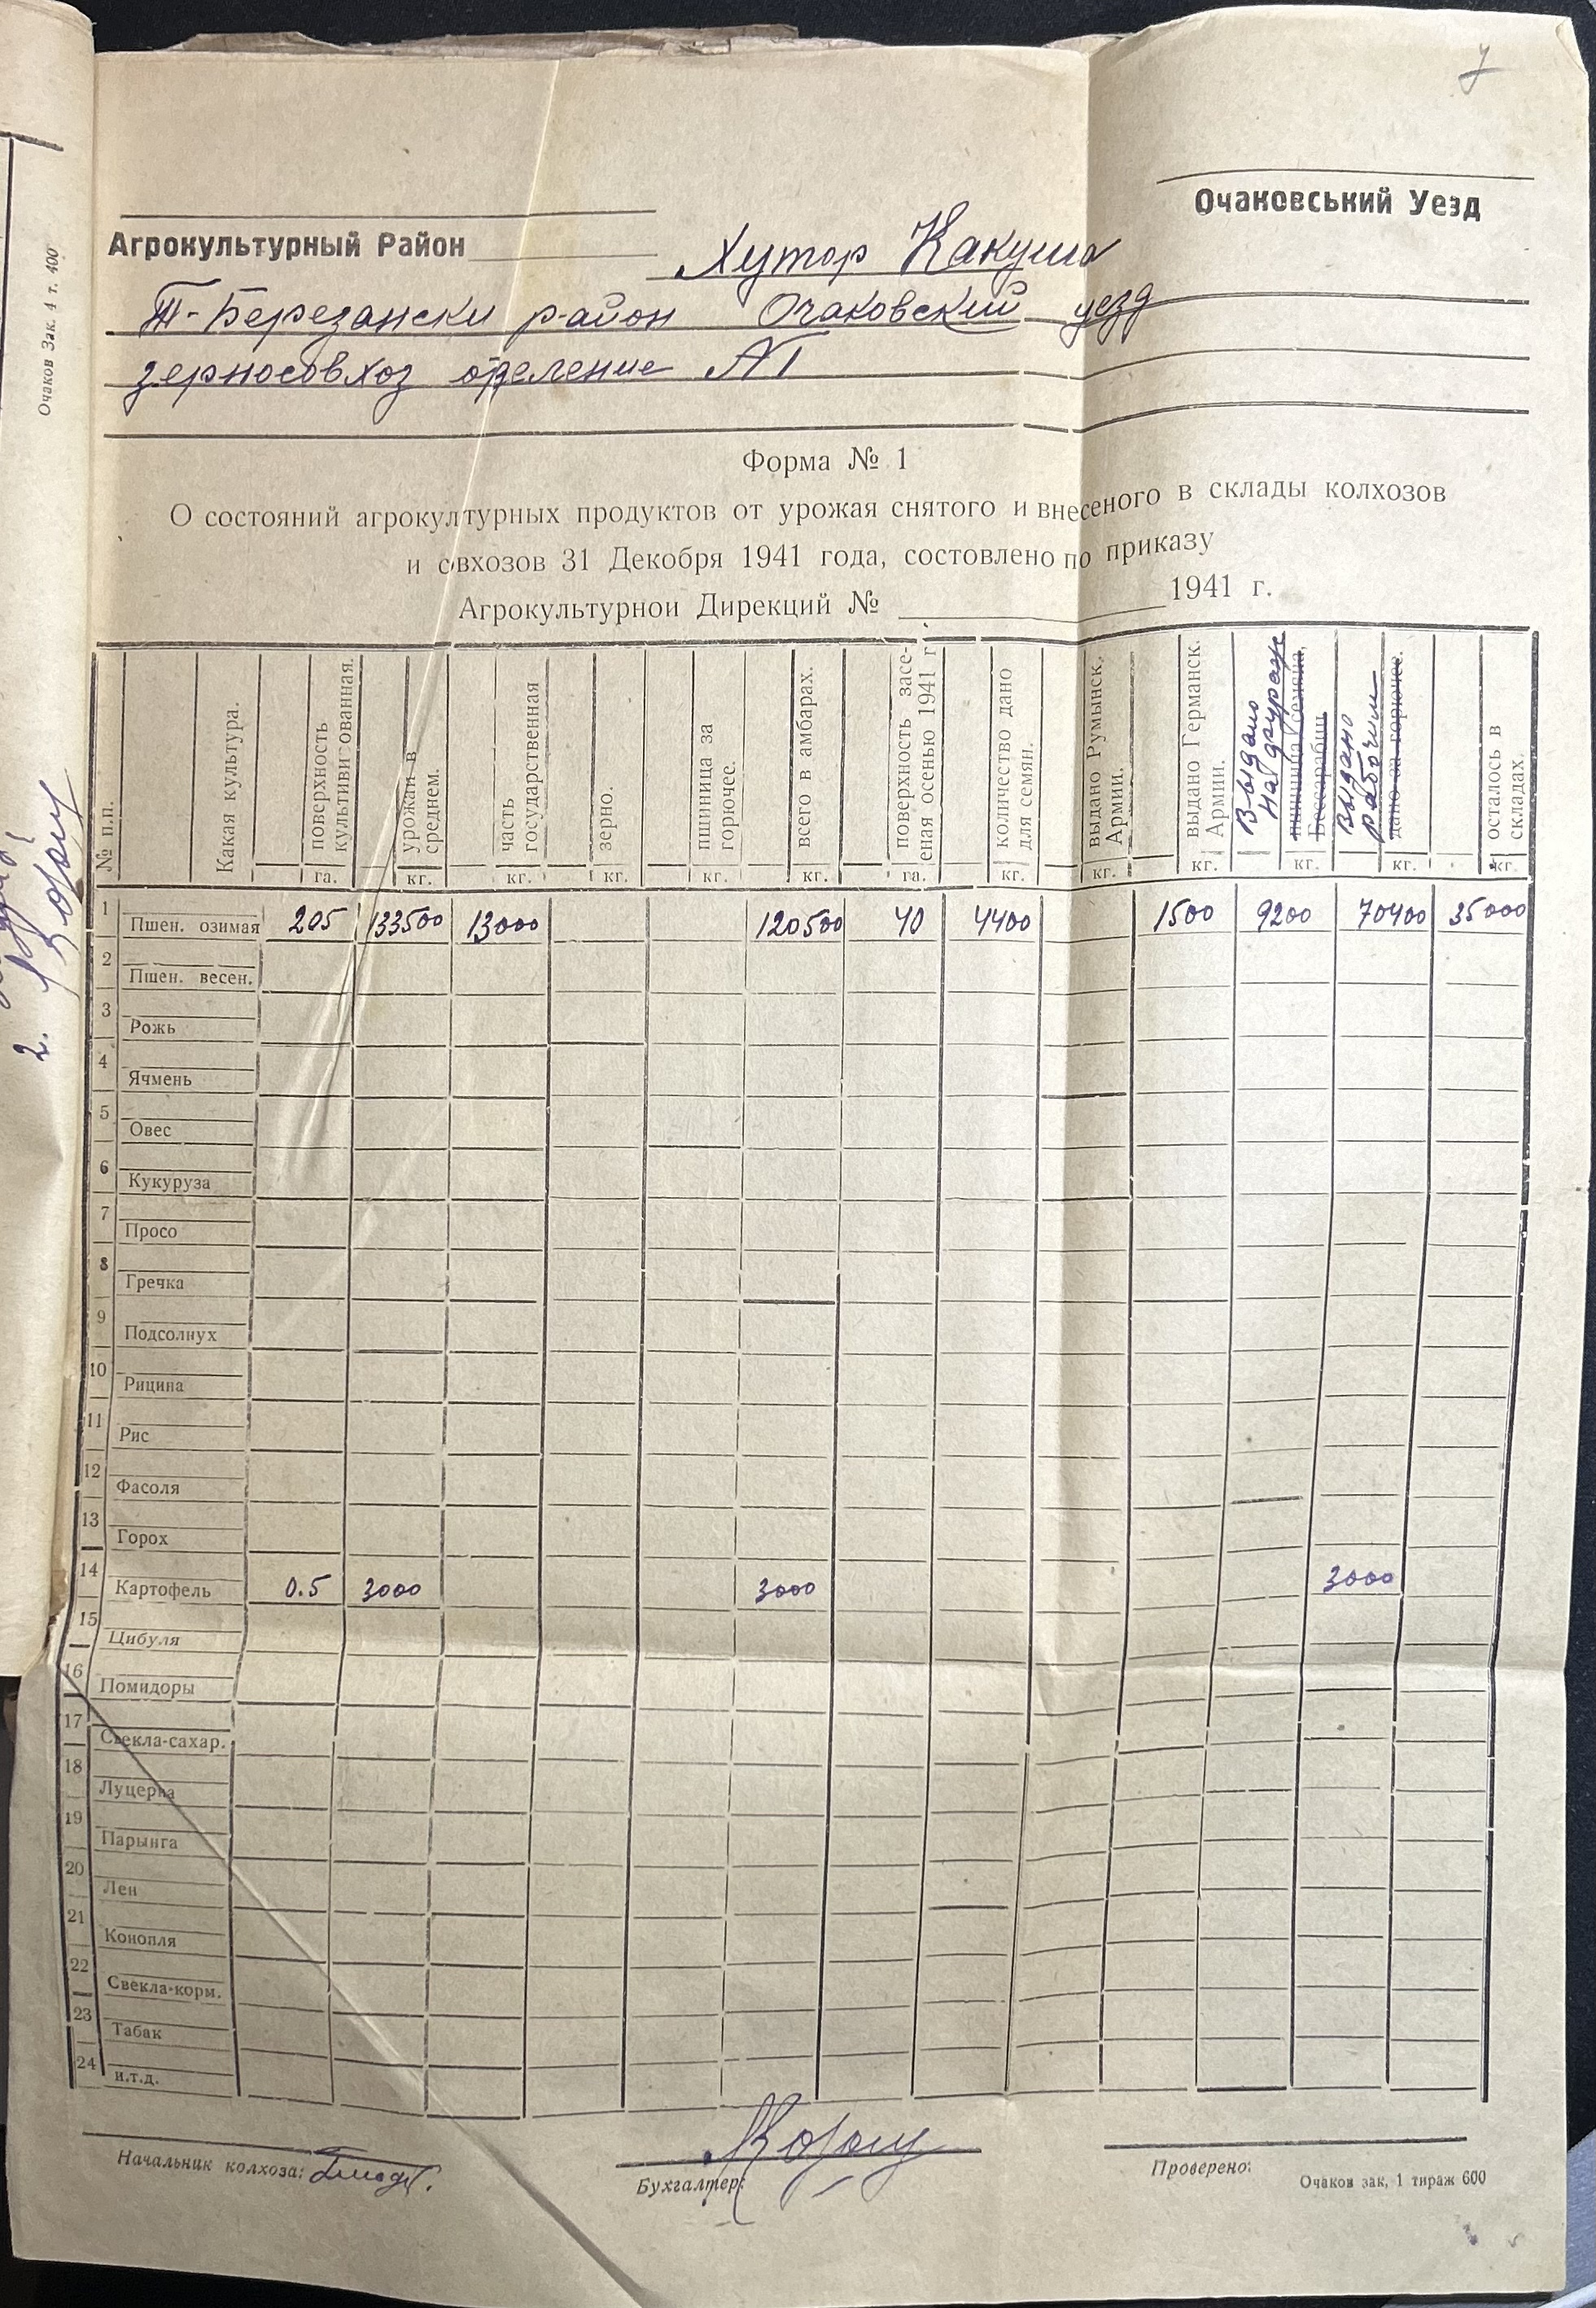 у
Очаковський Уезд
Агрокультурный Район
Хутор Какуша
Т-Березански район Очаковский уезд
зерносовхоз отделение №1
Форма № 1
О состояний агрокултурных продуктов от урожая снятого и внесеного в склады колхозов
и совхозов 31 Декобря 1941 года, состовлено по приказу
Агрокультурнои Дирекций № 1941 г.
№ п.п.
Какая культура.
поверхность культивированная. га.
урожаи в среднем. кг.
часть государственная кг.
зерно. кг.
пшиница за горючее. кг.
всего в амбарах. кг.
поверхность засе-
еная осенью 1941 г га.
количество дано для семян. кг.
выдано Румынск. Армии. кг.
выдано Германск. Армии. кг.
Выдано На фураж
Бессарабии кг.
выдано рабочим
дано за горючее. кг.
осталось в складах. кг.
1 Пшен. озимая 205 133500 13000 120500 40 4400 1500 9200 70400 35000
2 Пшен. весен.
3 Рожь
4 Ячмень
5 Овес
6 Кукуруза
7 Просо
8 Гречка
9 Подсолнух
10 Рицина
11 Рис
12 Фасоля
13 Горох
14 Картофель 0.5 3000 3000 3000
15 Цибуля
16 Помидоры
17 Свекла-сахар.
18 Луцерна
19 Парынга
20 Лен
21 Конопля
22 Свекла-корм.
23 Табак
24 и.т.д.
Начальник колхоза:
Бухгалтер:
Проверено:
Очаков зак, 1 тираж 600
Очаков Зак. 4 т. 400
2.